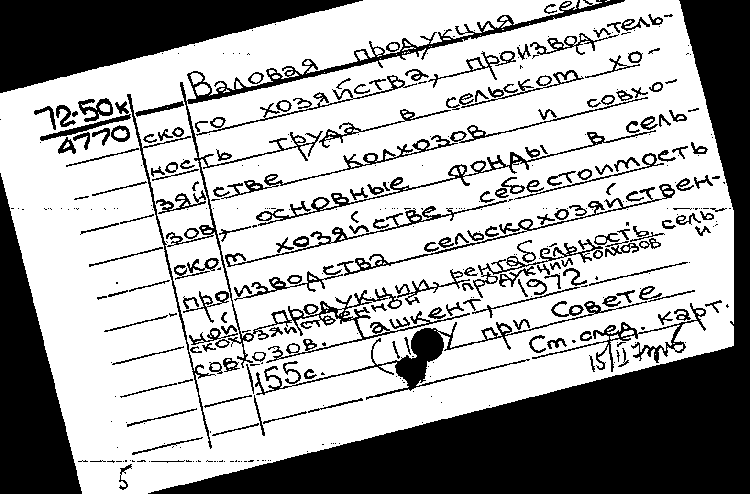 72-50к
4770
Валовая продукция сель
ского хозяйства, производитель-
ность труда в сельском хо-
зяйстве колхозов и совхо-
зов, основные фонды в сель-
ском хозяйстве, себестоимость
производства сельскохозяйствен-
ной продукции, рентабельность сель-
скохозяйственной продукции колхозов и
совхозов. Ташкент, 1972.
155с. при Совете
Ст. след. карт.
5